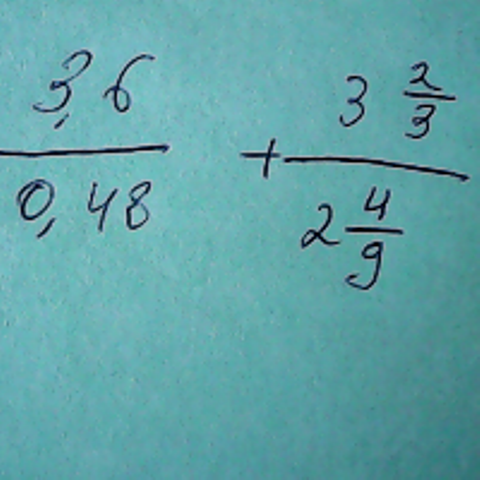 3,6 / 0,48 + 3 2/3 / 2 4/9